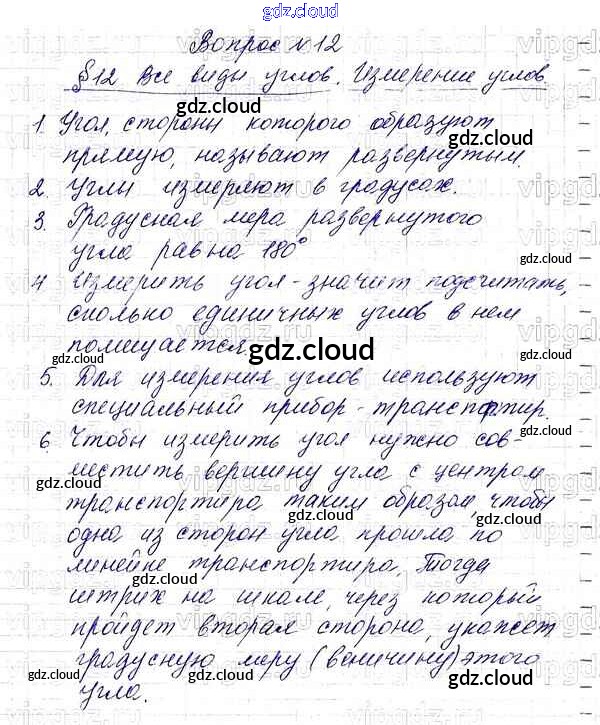 gdz.cloud
Вопрос №12
§12 Все виды углов. Измерение углов.
1. Угол, стороны которого образуют
прямую, называют развернутым.
2. Углы измеряют в градусах.
3. Градусная мера развернутого
угла равна 180°
4 Измерить угол - значит подсчитать,
сколько единичных углов в нем
помещается.
gdz.cloud
5. Для измерения углов используют
специальный прибор - транспортир.
6. Чтобы измерить угол нужно сов-
местить вершину угла с центром
транспортира таким образом, чтобы
одна из сторон угла прошла по
линейке транспортира. Тогда
штрих на шкале, через который
пройдет вторая сторона, укажет
градусную меру (величину) этого
угла.